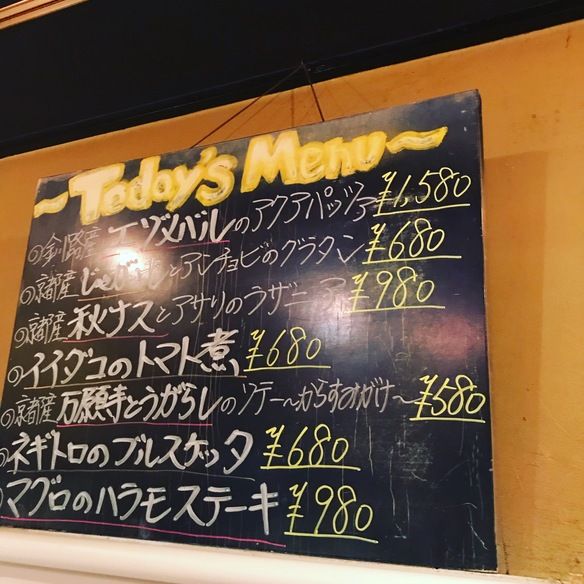 ~Today's Menu~
◎釧路産 エゾメバルのアクアパッツァ ¥1,580
◎京都産 とアンチョビのグラタン ¥680
◎京都産 秋ナスとアサリのラザニア ¥980
◎イイダコのトマト煮 ¥680
◎京都産 万願寺とうがらしのソテー〜からすみがけ〜 ¥580
◎ネギトロのブルスケッタ ¥680
◎マグロのハラモステーキ ¥980